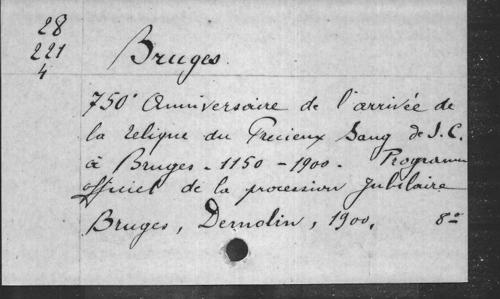 28
221
4
Bruges.
750e Anniversaire de l'arrivée de
la relique du Précieux Sang de J. C.
à Bruges - 1150 - 1900 - Programme
officiel de la procession jubilaire
Bruges, Demolin, 1900, 8º